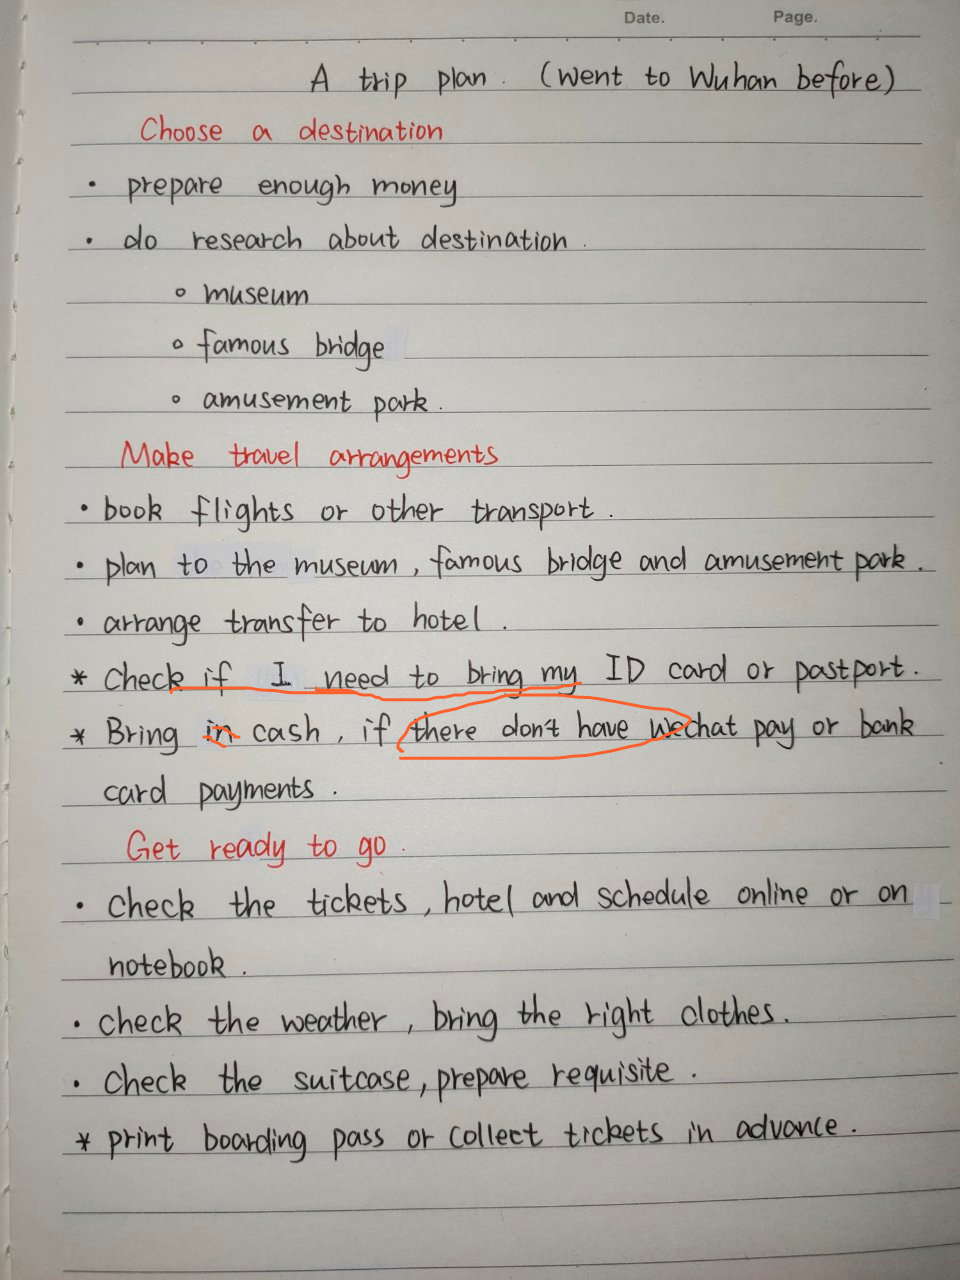 Date. Page.
A trip plan. (went to Wuhan before)
Choose a destination
• prepare enough money
• do research about destination.
◦ museum
◦ famous bridge
◦ amusement park.
Make travel arrangements
• book flights or other transport.
• plan to the museum, famous bridge and amusement park.
• arrange transfer to hotel.
* Check if I need to bring my ID card or pastport.
* Bring in cash, if there don't have wechat pay or bank
card payments.
Get ready to go.
• check the tickets, hotel and schedule online or on
notebook.
• check the weather, bring the right clothes.
• check the suitcase, prepare requisite.
* print boarding pass or collect tickets in advance.